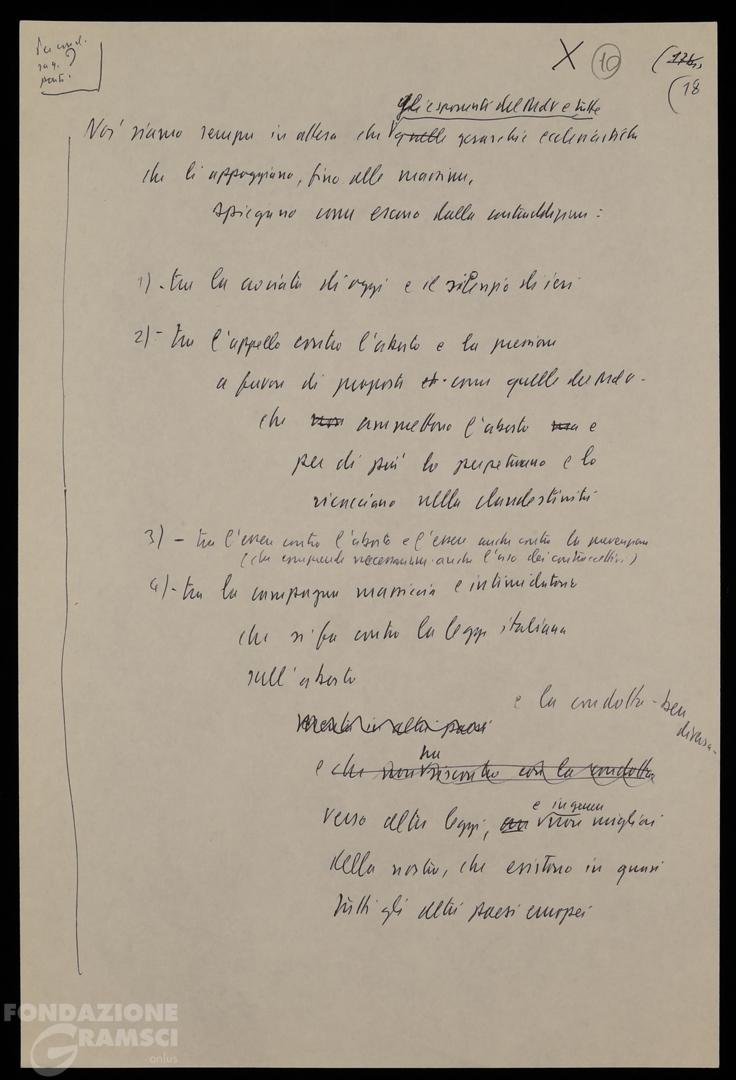 X 10 (17bis
(18
gli esponenti del MdV e tutte
Noi siamo sempre in attesa che quelle gerarchie ecclesiastiche
che li appoggiano, fino alle massime,
spieghino come escono dalla contraddizione:
1) - tra la crociata di oggi e il silenzio di ieri
2) - tra l'appello contro l'aborto e la pressione
a favore di proposte come quelle del MdV -
che non ammettono l'aborto ma e
per di più lo perpetuano e lo
ricacciano nella clandestinità
3) - tra l'essere contro l'aborto e l'essere anche contro la prevenzione
(che comprende necessariam. anche l'uso dei contraccettivi)
4) - tra la campagna massiccia e intimidatoria
che si fa contro la legge italiana
sull'aborto
e la condotta - ben
diversa -
mentre in altri paesi
ha
e che non riscontro con la condotta
e in genere
verso altre leggi, non migliori
della nostra, che esistono in quasi
tutti gli altri paesi europei
FONDAZIONE
GRAMSCI
onlus